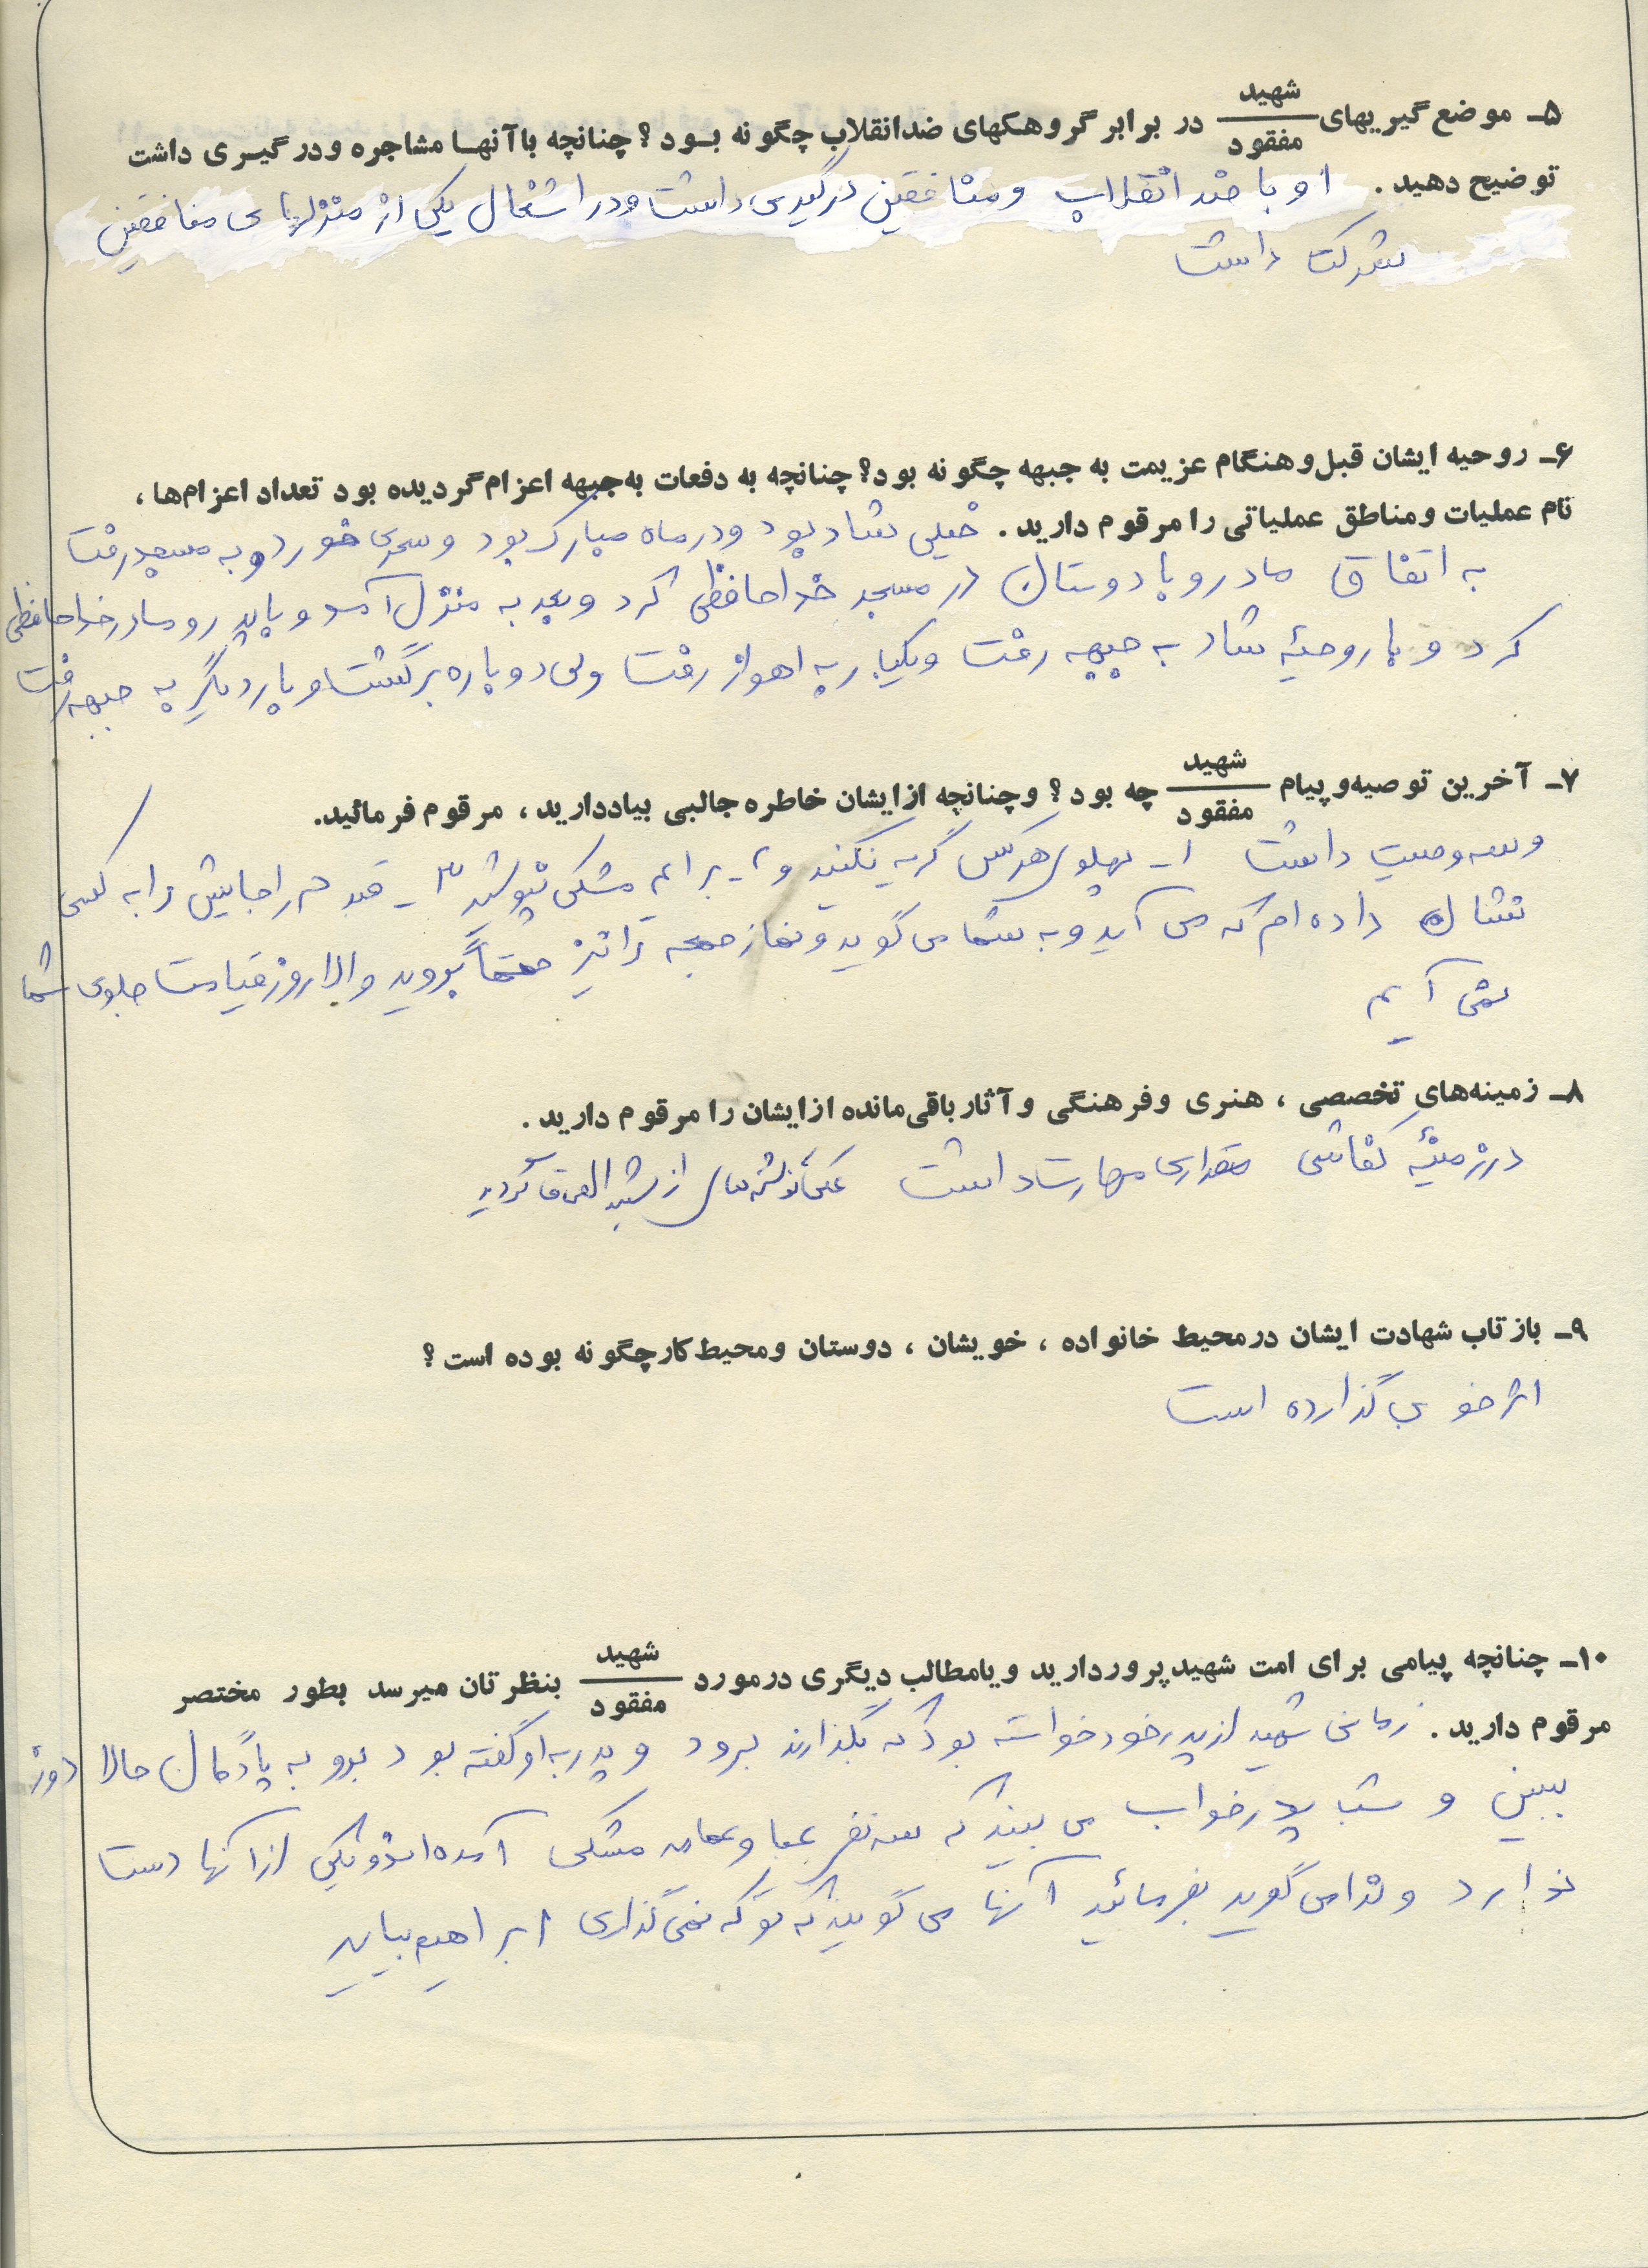 ۵ـ موضع گیریهای شهید / مفقود در برابر گروهکهای ضدانقلاب چگونه بود؟ چنانچه باآنها مشاجره ودرگیری داشت
توضیح دهید. او با ضد انقلاب و منافقین درگیری داشت ودر اشغال یکی از منزلهای منافقین
شرکت داشت
۶ـ روحیه ایشان قبل وهنگام عزیمت به جبهه چگونه بود؟ چنانچه به دفعات به جبهه اعزام گردیده بود تعداد اعزام‌ها،
نام عملیات ومناطق عملیاتی را مرقوم دارید. خیلی شاد بود ودر ماه مبارک بود و سحری خورد و به مسجد رفت
به اتفاق مادر و با دوستان در مسجد خداحافظی کرد و بعد به منزل آمد و با پدر و مادر خداحافظی
کرد و با روحیهٔ شاد به جبهه رفت ویکبار به اهواز رفت ولی دوباره برگشت و بار دیگر به جبهه رفت
۷ـ آخرین توصیه‌وپیام شهید / مفقود چه بود؟ وچنانچه ازایشان خاطره جالبی بیاددارید، مرقوم فرمائید.
وسه وصیت داشت ۱ـ پهلوی هرکس گریه نکنید و ۲ـ برایم مشکی نپوشید ۳ـ قبرم را جایش را به کسی
نشان داده ام که می آید و به شما می گوید و نماز جمعه را نیز حتماً بروید والا روز قیامت جلوی شما
نمی آیم
۸ـ زمینه‌های تخصصی، هنری وفرهنگی وآثارباقی‌مانده ازایشان را مرقوم دارید.
در زمینهٔ نقاشی مقداری مهارت داشت از شهید گردید
۹ـ بازتاب شهادت ایشان درمحیط خانواده، خویشان، دوستان ومحیط کارچگونه بوده است؟
اثر خوبی گذارده است
۱۰ـ چنانچه پیامی برای امت شهیدپروردارید ویامطالب دیگری درمورد شهید / مفقود بنظرتان میرسد بطور مختصر
مرقوم دارید. زمانی شهید از پدر خود خواسته بود که بگذارند برود و پدر به او گفته بود برو به پادگان حالا دوره
ببین و شب پدر خواب می بیند که سه نفر عبا و عمامه مشکی آمده اند ویکی از آنها دست
ندارد و ندا می گوید بفرمائید آنها می گویند که تو که نمی گذاری ابراهیم بیاید